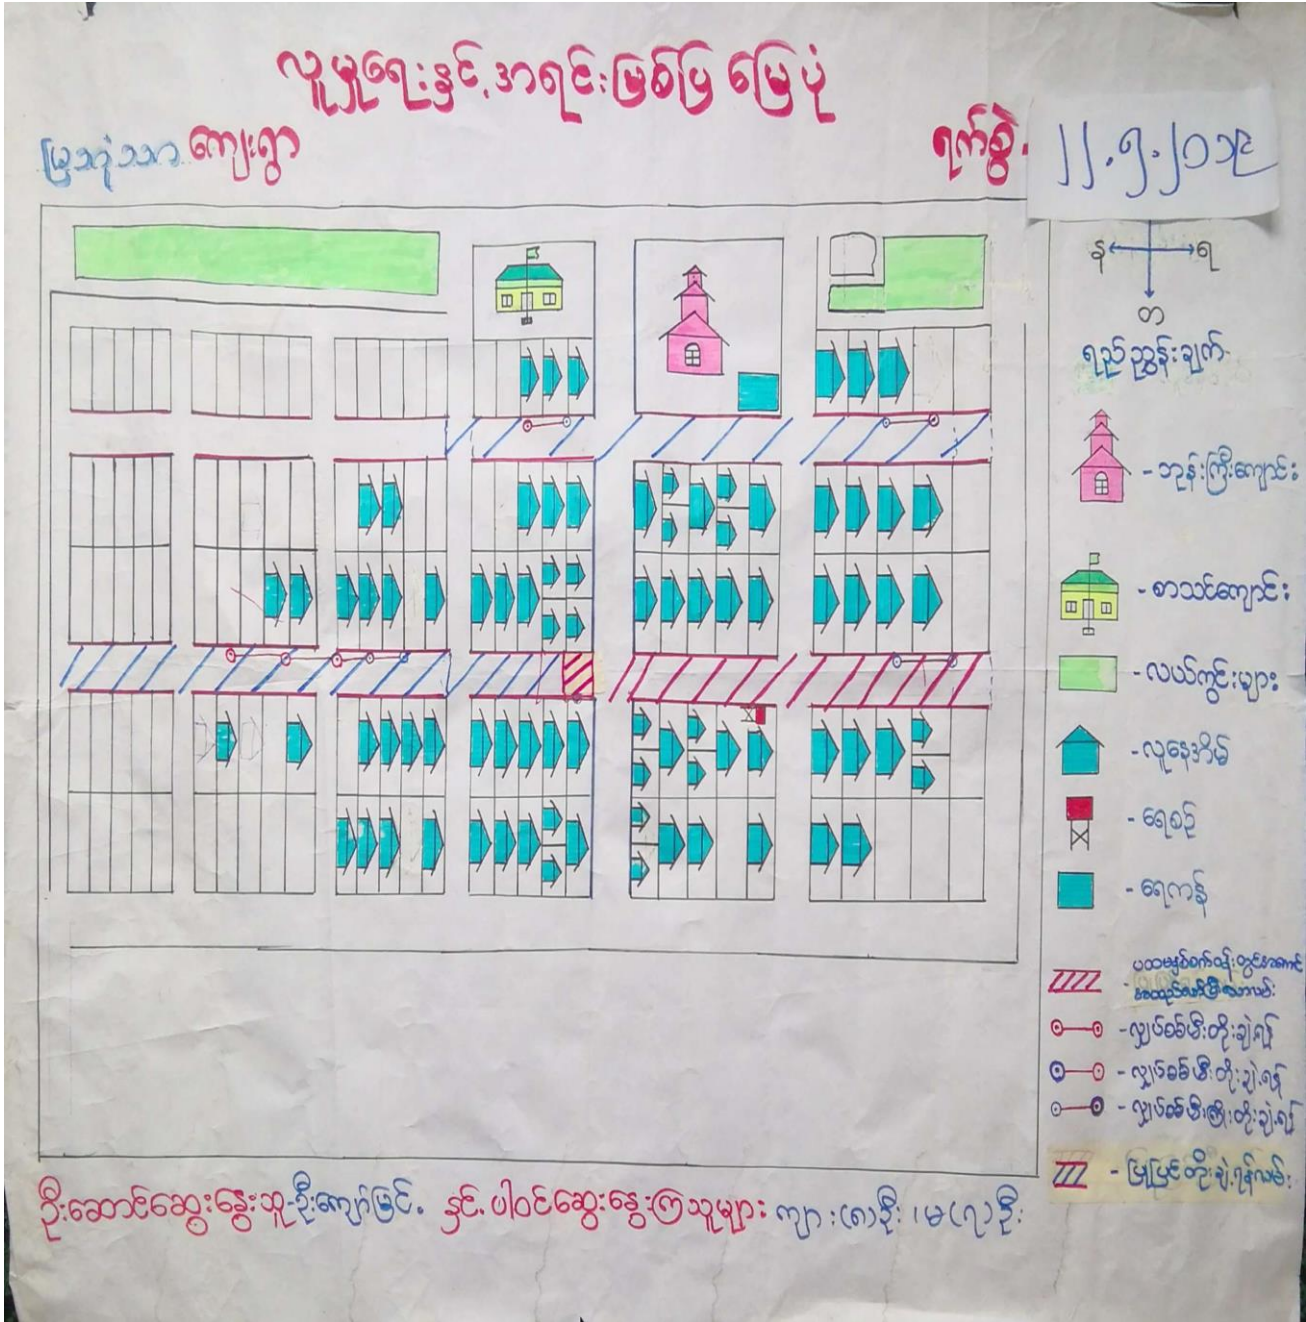 လူမှုရေးနှင့်အရင်းမြစ်ပြ မြေပုံ
ကျေးရွာ
ရက်စွဲ.
၂၂.၅.၂၀၁၉
န ရ
တ
ရည်ညွှန်းချက်.
- ဘုန်းကြီးကျောင်း
- စာသင်ကျောင်း
- လယ်ကွင်းများ
- လူနေအိမ်
- ရေစင်
- ရေကန်
- လျှပ်စစ်မီးတိုးချဲ့ရန်
- လျှပ်စစ်မီးတိုးချဲ့ရန်
- လျှပ်စစ်မီးကြိုးတိုးချဲ့ရန်
- ပြုပြင်တိုးချဲ့ရန်လမ်း
ဦးဆောင်ဆွေးနွေးသူ-ဦးကျော်မြင့်. နှင့်.ပါဝင်ဆွေးနွေးကြသူများ ကျား(၈)ဦး ၊မ(၇)ဦး